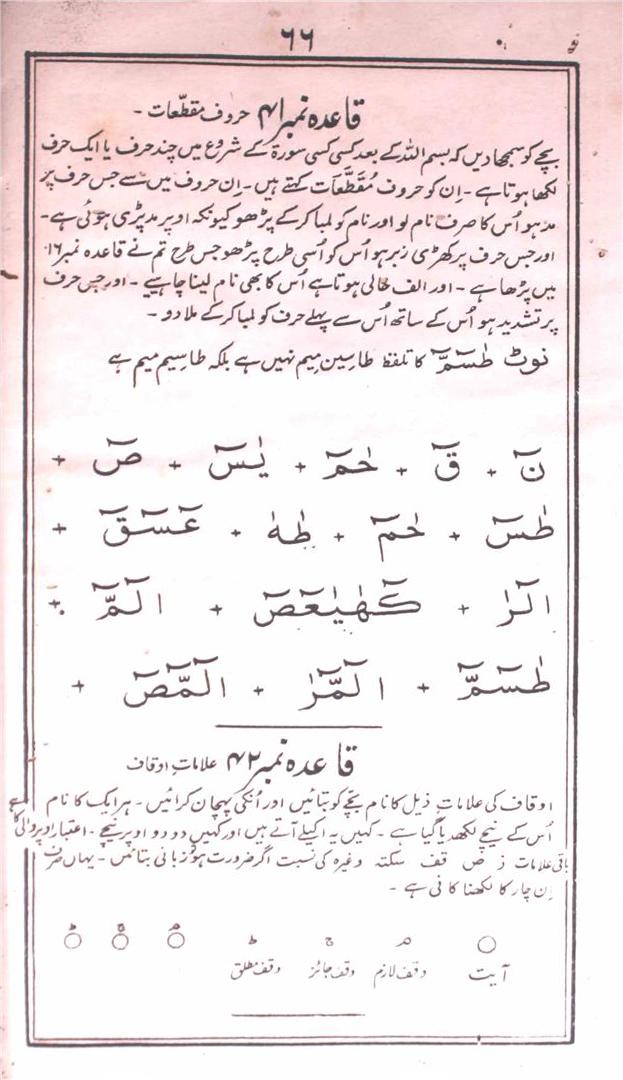 ۶۶
قاعدہ نمبر۴۱ حروف مقطّعات ۔
بچے کو سمجھا دیں کہ بسم اللہ کے بعد کسی کسی سورۃ کے شروع میں چند حرف یا ایک حرف
لکھا ہوتا ہے ۔ اِن کو حروف مُقَطَّعَات کہتے ہیں ۔ اِن حروف میں سے جس حرف پر
مد ہو اُس کا صرف نام لو اور نام کو لمبا کر کے پڑھو کیونکہ اوپر مد پڑی ہوئی ہے ۔
اور جس حرف پر کھڑی زبر ہو اُس کو اُسی طرح پڑھو جس طرح تم نے قاعدہ نمبر ۱۶
میں پڑھا ہے ۔ اور الف خالی ہوتا ہے اُس کا بھی نام لینا چاہیے ۔ اور جس حرف
پر تشدید ہو اُس کے ساتھ اُس سے پہلے حرف کو لمبا کر کے ملا دو ۔
نوٹ طٰسٓمّٓ کا تلفظ طا سین میم نہیں ہے بلکہ طا سیم میم ہے
نٓ + قٓ + حٰمٓ + یٰسٓ + صٓ +
طٰسٓ + حٰمٓ + طٰهٰ + عٓسٓقٓ +
الٓرٰ + كٓهٰیٰعٓصٓ + الٓمّٓ +
طٰسٓمّٓ + الٓمّٓرٰ + الٓمّٓصٓ +
قاعدہ نمبر۴۲ علامات اوقاف
اوقاف کی علامات ذیل کا نام بچے کو بتائیں اور اُنکی پہچان کرائیں ۔ ہر ایک کا نام
اُس کے نیچے لکھدیا گیا ہے ۔ کہیں یہ اکیلے آتے ہیں اور کہیں دو دو اوپر نیچے ۔ اعتبار اوپر والی کا ہے
باقی علامات ز ص قف سکتہ وغیرہ کی نسبت اگر ضرورت ہو تو زبانی بتائیں ۔ یہاں صرف
اِن چار کا لکھنا کافی ہے ۔
○ مـ ج ط
آیت وقف لازم وقف جائز وقف مطلق